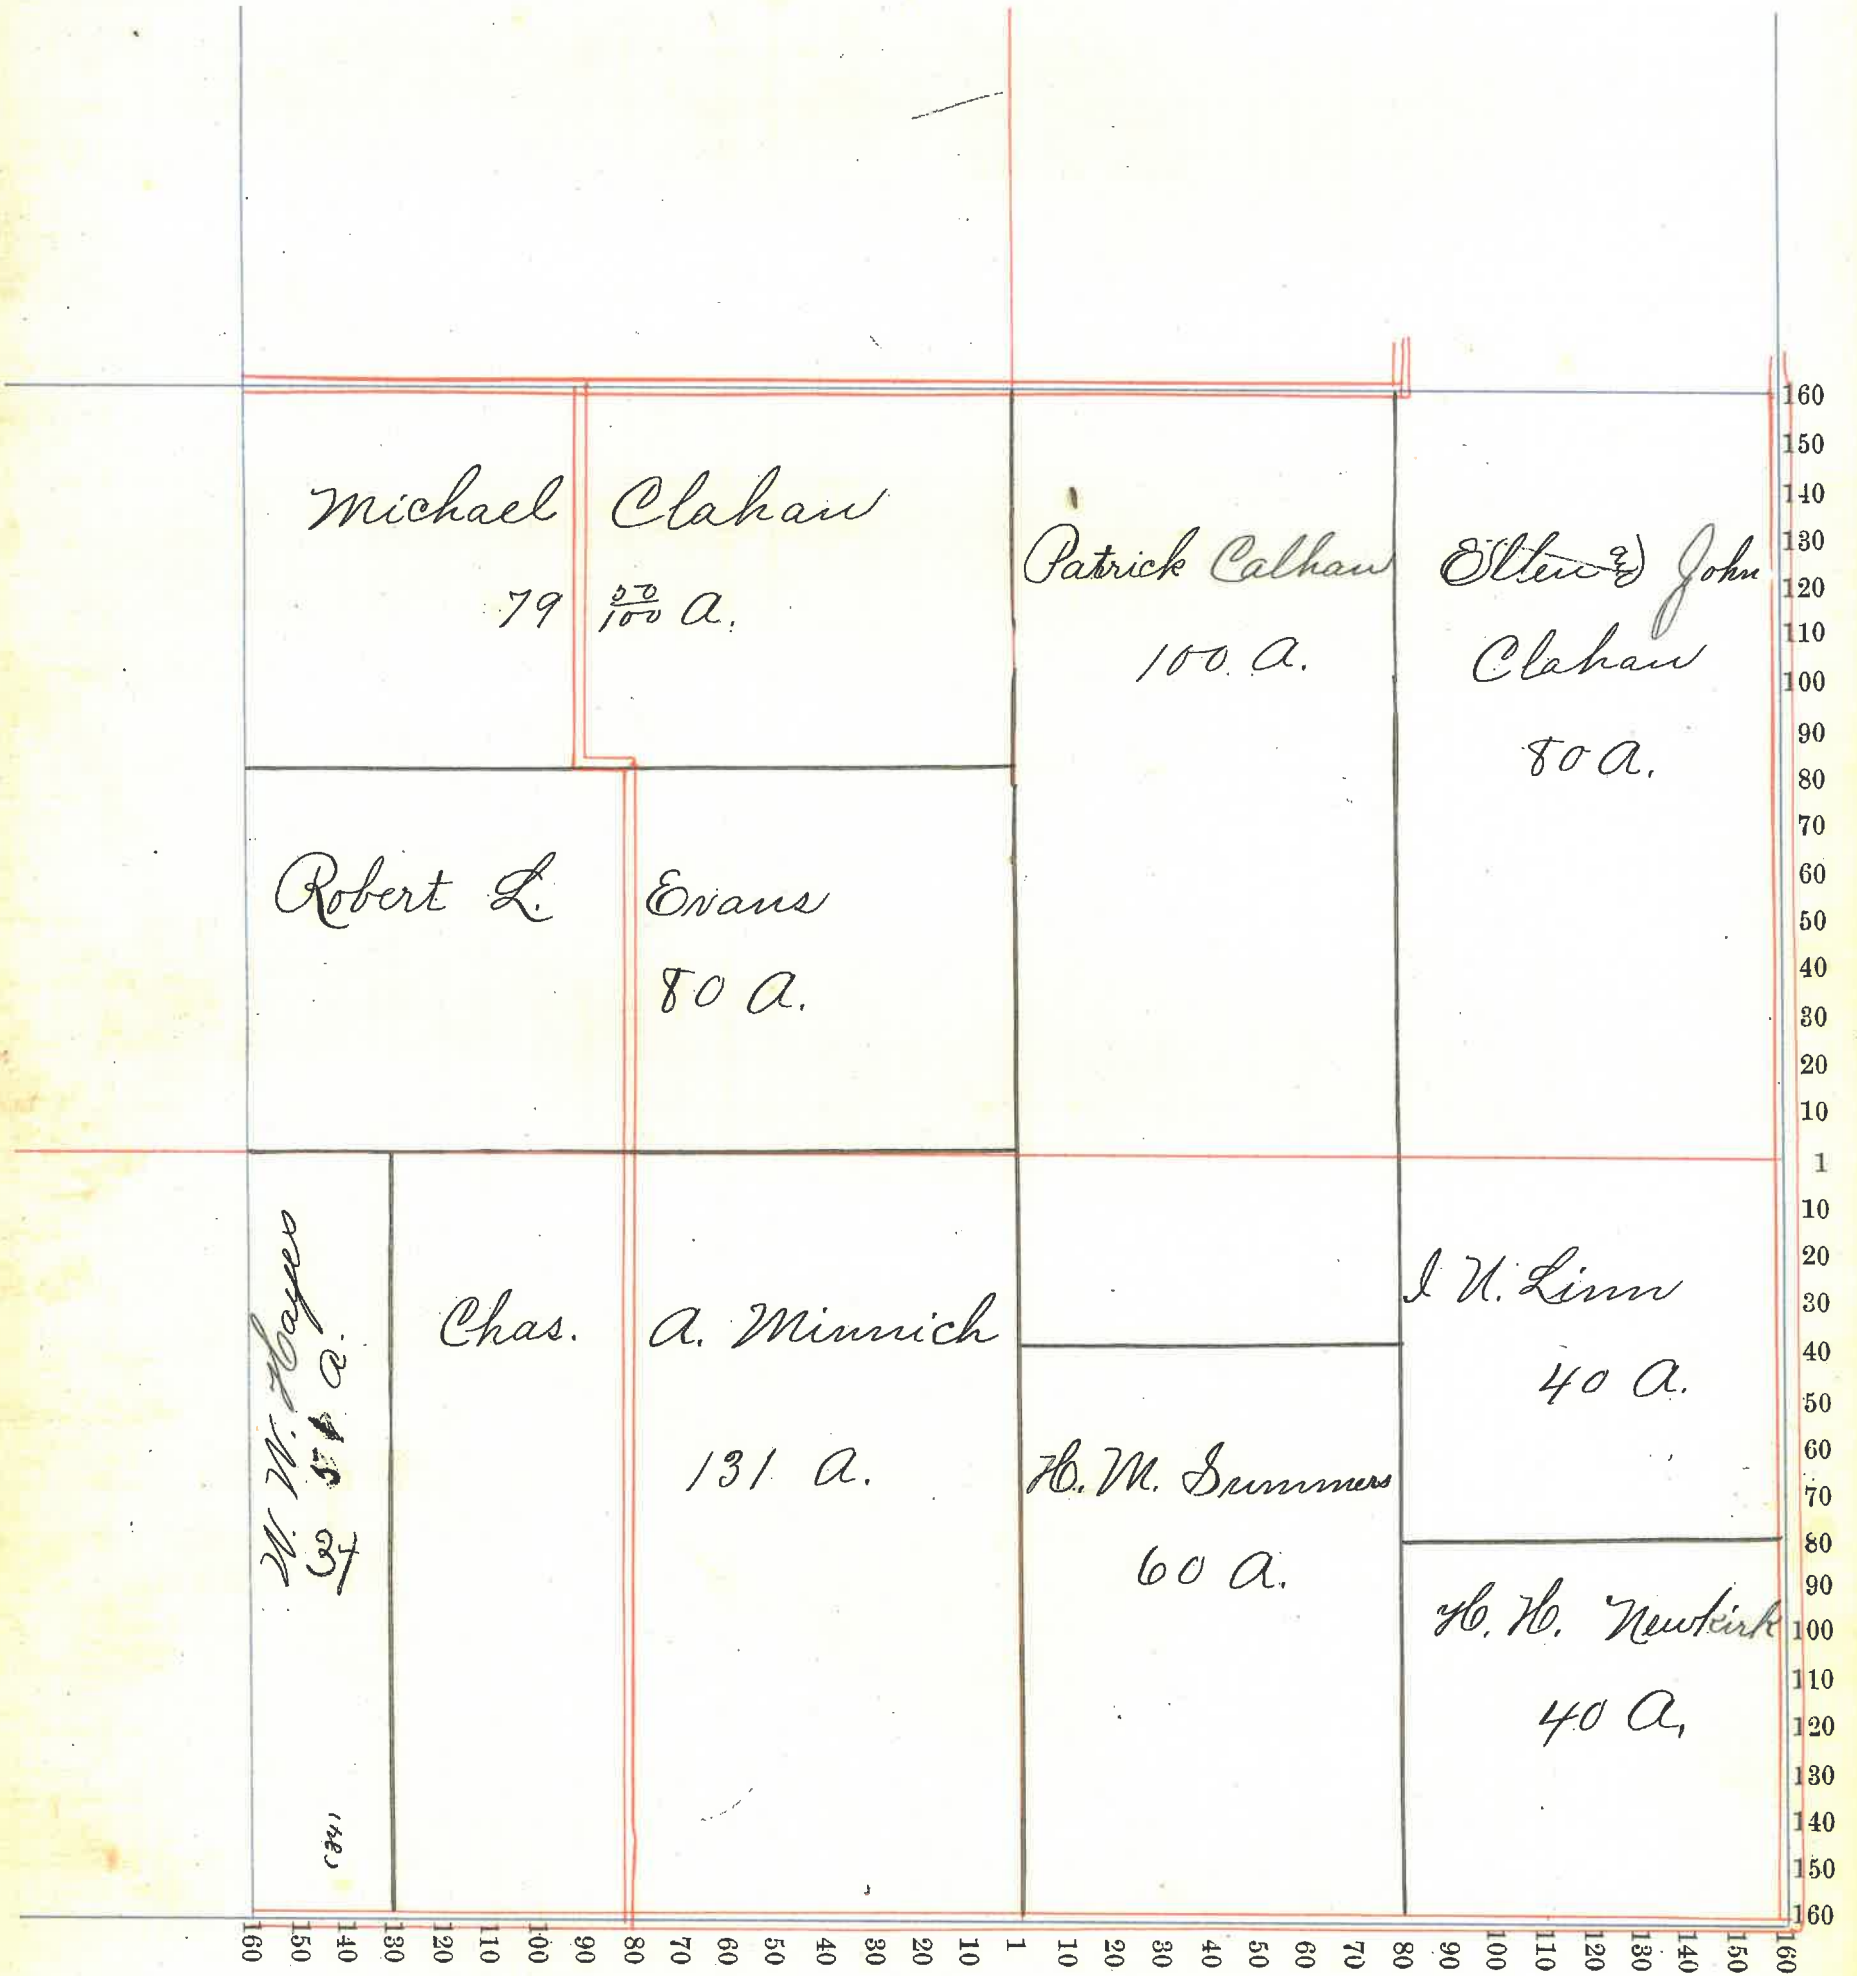 Michael Clahan
79 50/100 A.
Patrick Calhan
100. A.
John
Clahan
80 A.
Robert L. Evans
80 A.
W. W. Hayes
A.
Chas. A. Minnich
131 A.
I N. Linn
40 A.
H. M. Summers
60 A.
H. H. Newkirk
40 A.
160
150
140
130
120
110
100
90
80
70
60
50
40
30
20
10
1
10
20
30
40
50
60
70
80
90
100
110
120
130
140
150
160
160 150 140 130 120 110 100 90 80 70 60 50 40 30 20 10 1 10 20 30 40 50 60 70 80 90 100 110 120 130 140 150 160